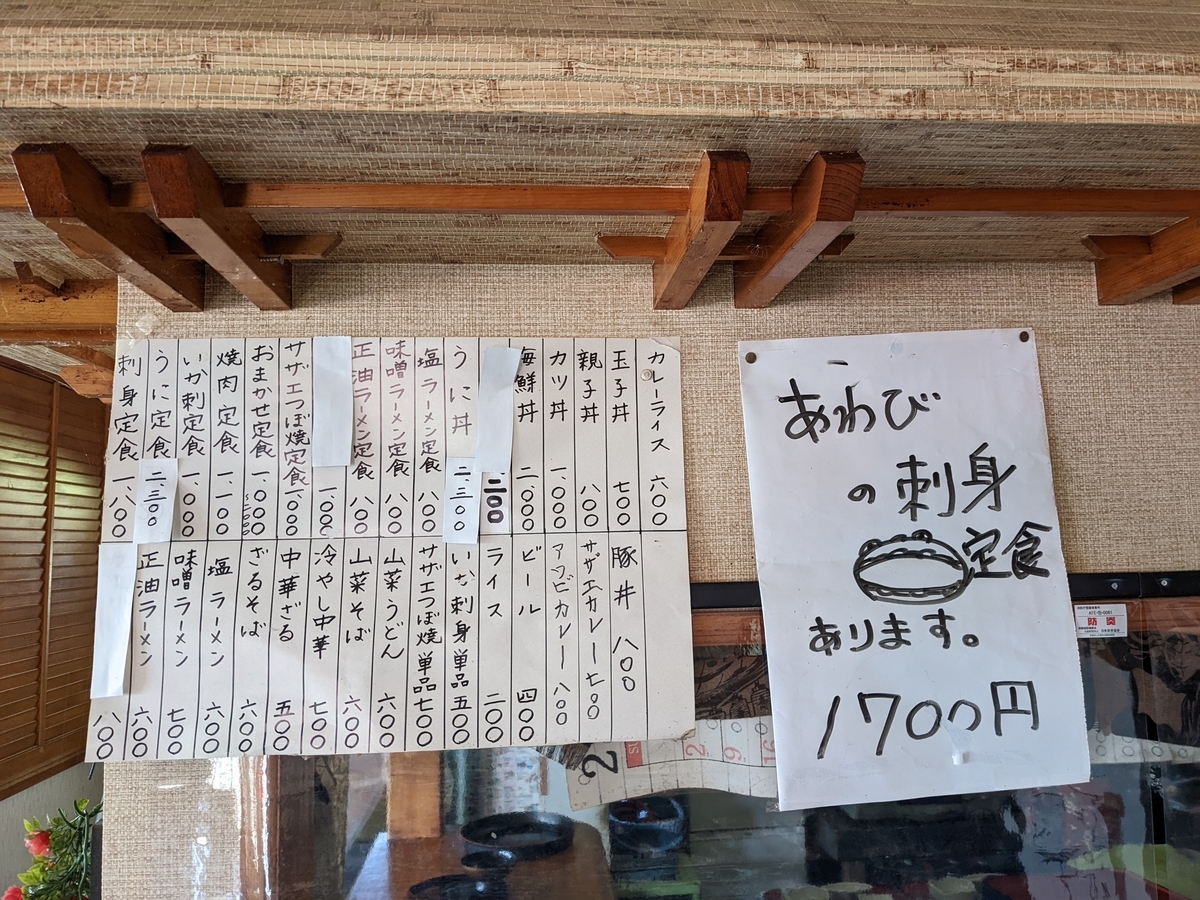 カレーライス 六〇〇
玉子丼 七〇〇
親子丼 八〇〇
カツ丼 一、〇〇〇
海鮮丼 二、〇〇〇
二〇〇
うに丼 二、三〇〇
塩ラーメン定食 八〇〇
味噌ラーメン定食 八〇〇
正油ラーメン定食 八〇〇
一、〇〇〇
サザエつぼ焼定食 一、〇〇〇
おまかせ定食 一、〇〇〇
焼肉定食 一、一〇〇
いか刺定食 一、〇〇〇
うに定食 二、三〇〇
刺身定食 一、八〇〇
豚丼 八〇〇
サザエカレー 七〇〇
アワビカレー 八〇〇
ビール 四〇〇
ライス 二〇〇
いか刺身単品 五〇〇
サザエつぼ焼単品 七〇〇
山菜うどん 六〇〇
山菜そば 六〇〇
冷やし中華 七〇〇
中華ざる 五〇〇
ざるそば 六〇〇
塩ラーメン 六〇〇
味噌ラーメン 七〇〇
正油ラーメン 六〇〇
八〇〇
あわび
の刺身
定食
あります。
1700円
防炎
2
2 9 16